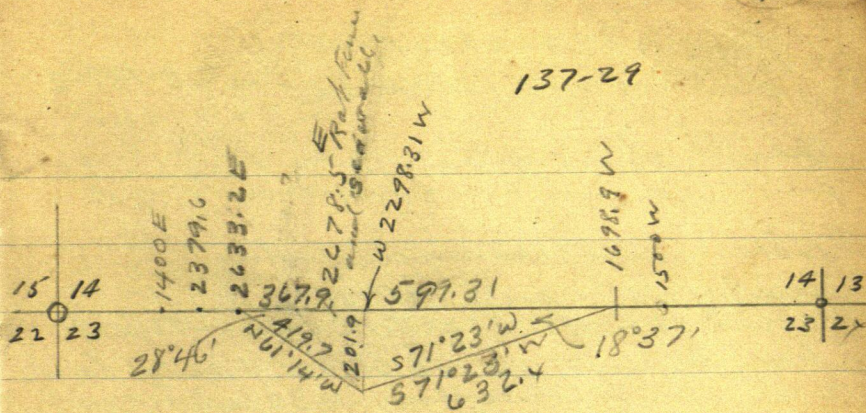 137-29
1400 E
2379.6
2633.2 E
?
2678.5 E Rail Fence
and sidewalk
W 2298.31 W
1698.9 W
1500 W
15 14
22 23
367.9
599.31
14 13
23 24
28°46'
419.7
N61°14'W
201.9
S71°23'W
S71°23'W
632.4
18°37'